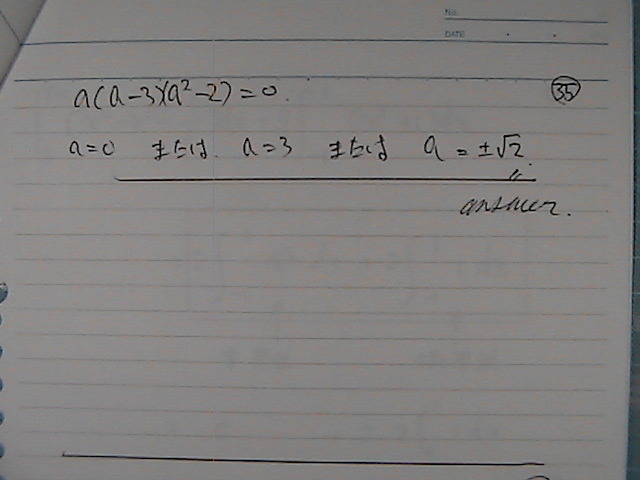 No.
DATE
a(a-3)(a²-2)=0.
㉟
a=0 または. a=3 または a=±√2.
answer.